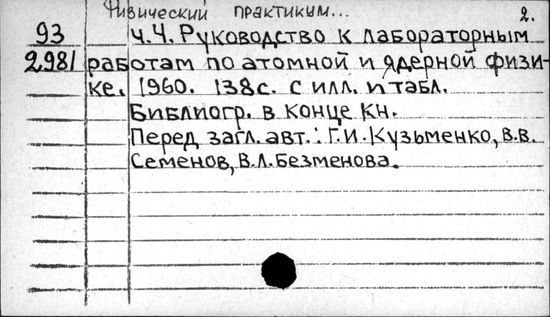 Физический практикум... 2.
93 ч.4. Руководство к лабораторным
2981 работам по атомной и ядерной физи-
ке. 1960. 138с. с илл. и табл.
Библиогр. в конце кн.
Перед загл. авт.: Г.И. Кузьменко, В.В.
Семенов, В.Л. Безменова.